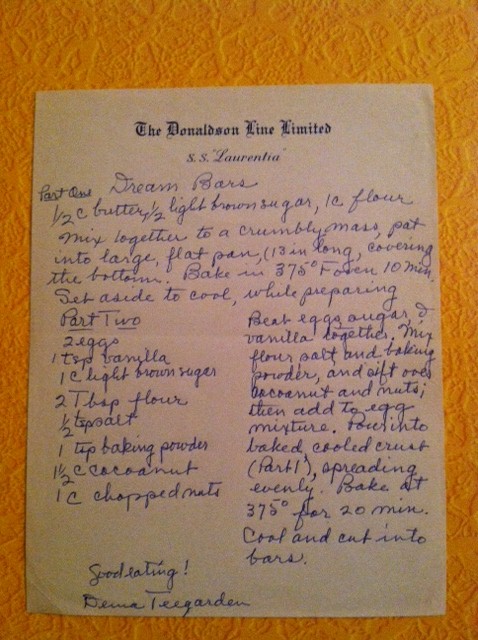 The Donaldson Line Limited
S.S. "Laurentia"
Part One Dream Bars
1/2 c butter, 1/2 light brown sugar, 1c flour
Mix together to a crumbly mass, pat
into large, flat pan, (13 in long, covering
the bottom. Bake in 375° F oven 10 min.
Set aside to cool, while preparing
Part Two
2 eggs
1 tsp vanilla
1 c light brown sugar
2 Tbsp flour
1/2 tsp salt
1 tsp baking powder
1 1/2 c cocoanut
1 c chopped nuts
Beat eggs, sugar &
vanilla together. Mix
flour salt and baking
powder, and sift over
cocoanut and nuts;
then add to egg
mixture. Pour into
baked, cooled crust
(Part 1), spreading
evenly. Bake at
375° for 20 min.
Cool and cut into
bars.
Good eating!
Dema Teegarden